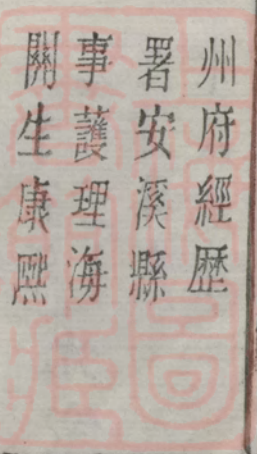 州府經歷
署安溪縣
事護理海
關生康熙